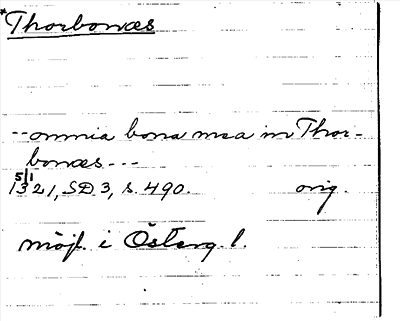 *Thorbonæs
-- omnia bona mea in Thor-
bonæs ---
5/1
1321, SD 3, s. 490. orig.
möjl. i Österg. l.